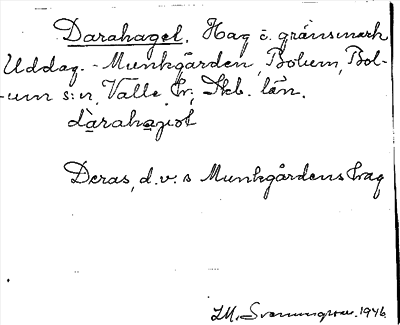 Darahaget. Hag o. gränsmark
Uddag. - Munkgården, Bolum, Bol-
-um s:n, Valle hr, Skb. län.
dàrahaget
Deras, d.v.s Munkgårdens hag
1946.